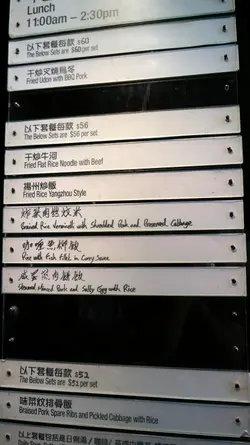 Lunch
11:00am - 2:30pm
以下套餐每款 $60
The Below Sets are $60 per set
干炒叉燒烏冬
Fried Udon with BBQ Pork
以下套餐每款 $56
The Below Sets are $56 per set
干炒牛河
Fried Flat Rice Noodle with Beef
揚州炒飯
Fried Rice Yangzhou Style
Braised Rice Vermicelli with Shredded Pork and Preserved Cabbage
咖喱魚柳飯
Rice with Fish Fillet in Curry Sauce
咸蛋蒸肉餅飯
Steamed Minced Pork and Salty Egg with Rice
以下套餐每款 $52
The Below Sets are $52 per set
味菜炆排骨飯
Braised Pork Spare Ribs and Pickled Cabbage with Rice
以上套餐包括是日例湯